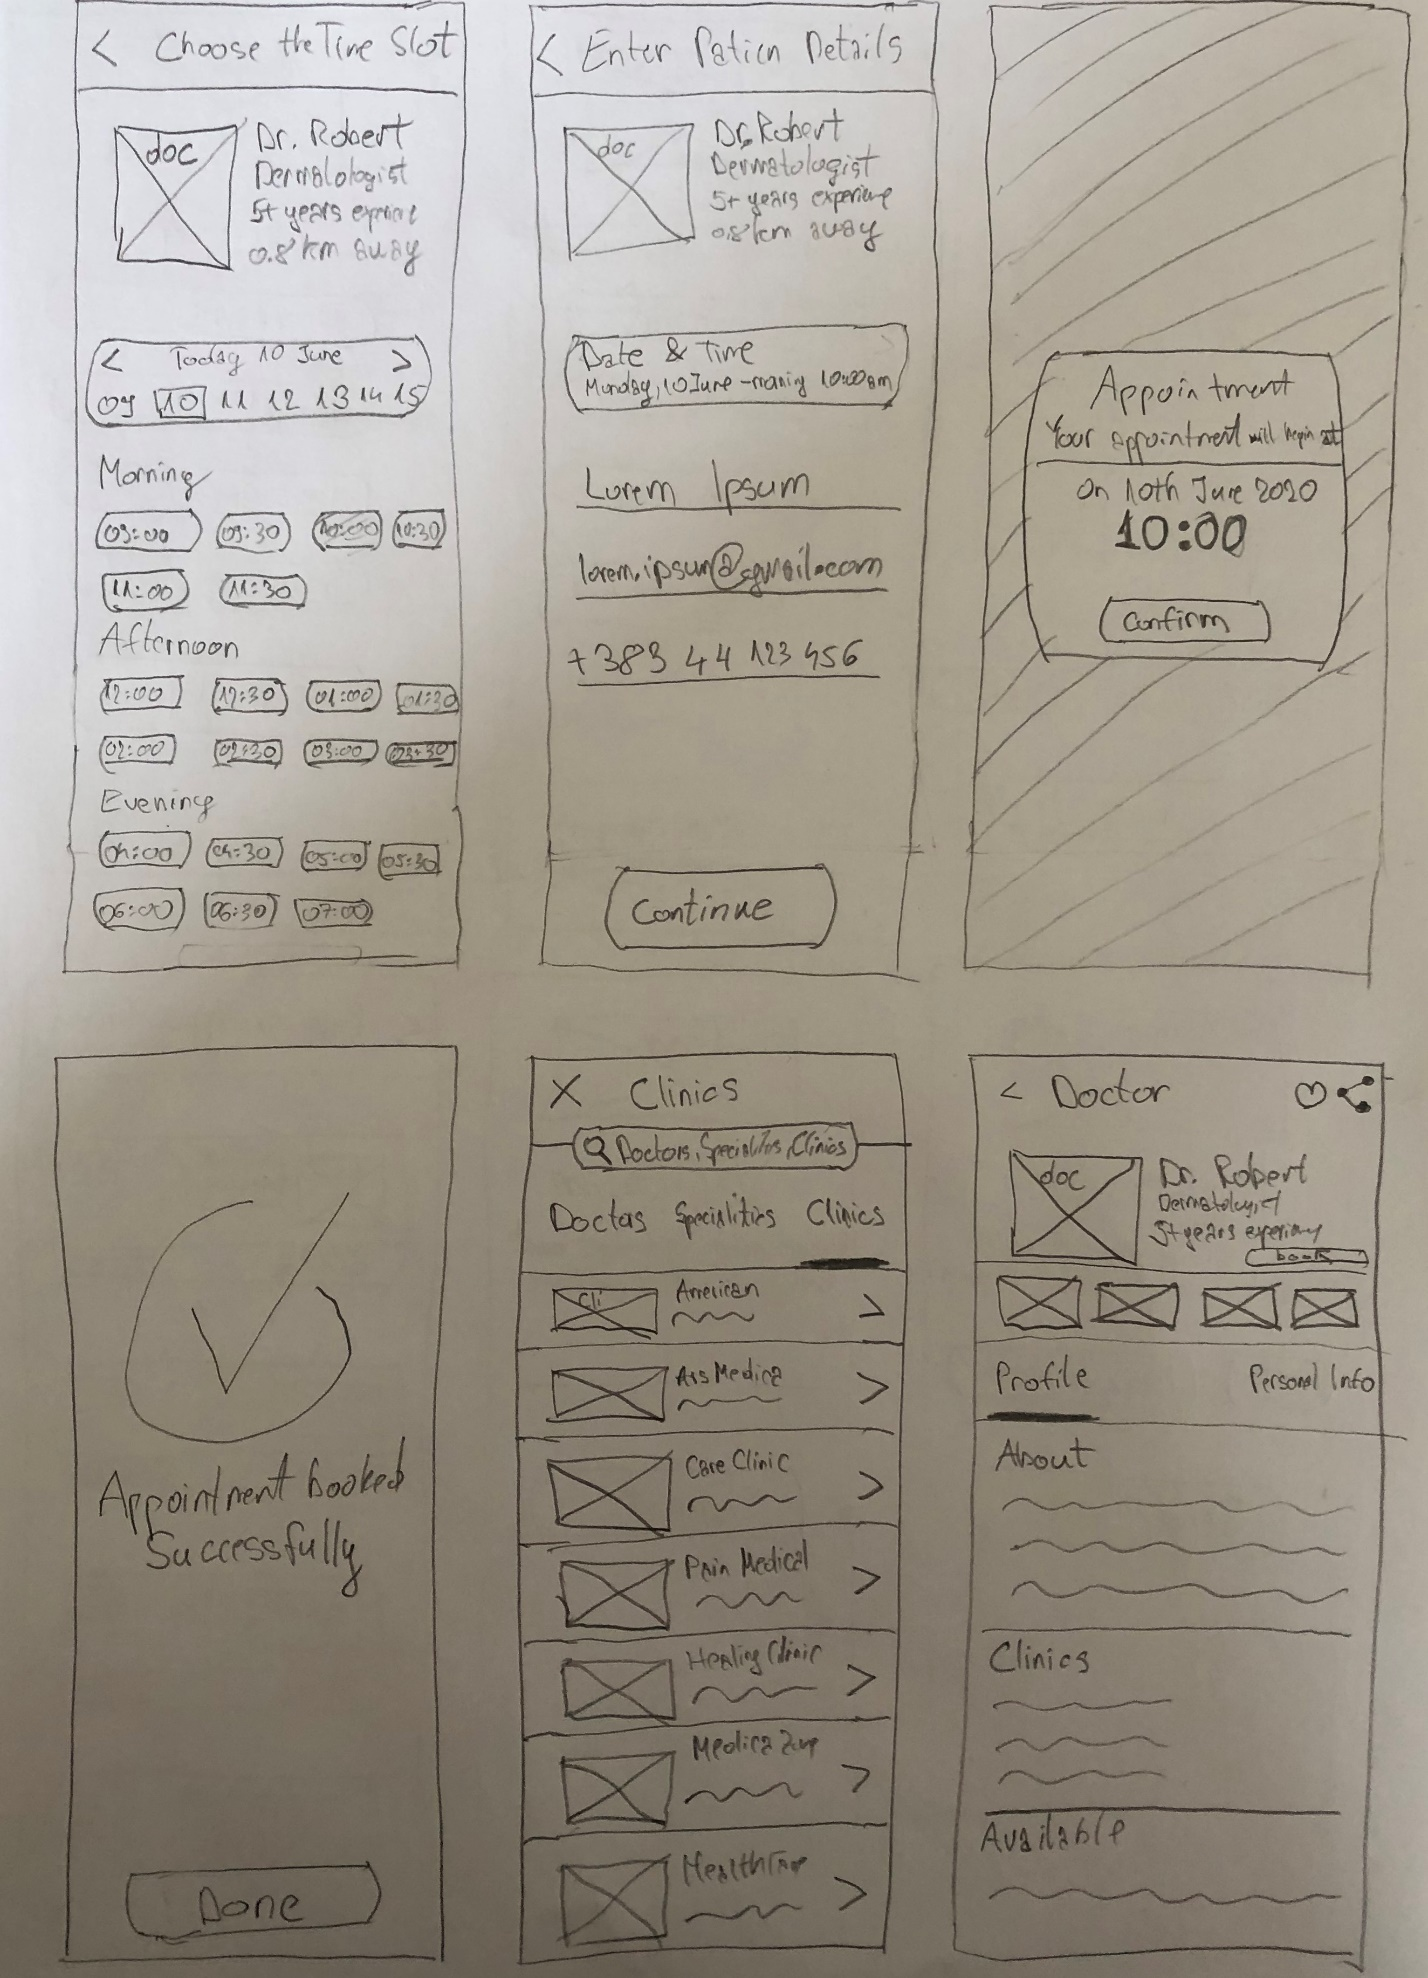 < Choose the Time Slot
doc
Dr. Robert
Dermalologist
5+ years
0.8 km away
< Today 10 June >
09 10 11 12 13 14 15
Morning
09:00 09:30 10:00 10:30
11:00 11:30
Afternoon
12:00 12:30 01:00 01:30
02:00 02:30 03:00 03:30
Evening
04:00 04:30 05:00 05:30
06:00 06:30 07:00
< Enter Details
doc
Dr. Robert
Dermatologist
5+ years
0.8 km away
Date & Time
Monday, 10 June - 10:00am
Lorem Ipsum
lorem.ipsum@gmail.com
+383 44 123 456
Continue
Appointment
Your appointment will begin at
On 10th June 2020
10:00
Confirm
Appointment booked
Successfully
Done
X Clinics
Doctors, Clinics
Specialities Clinics
Cli
American
>
Ars Medica
>
Care Clinic
>
Medical
>
Healing Clinic
>
Medica
>
>
< Doctor
doc
Dr. Robert
Dermatologist
5+ years
book
Profile Personal Info
About
Clinics
Available